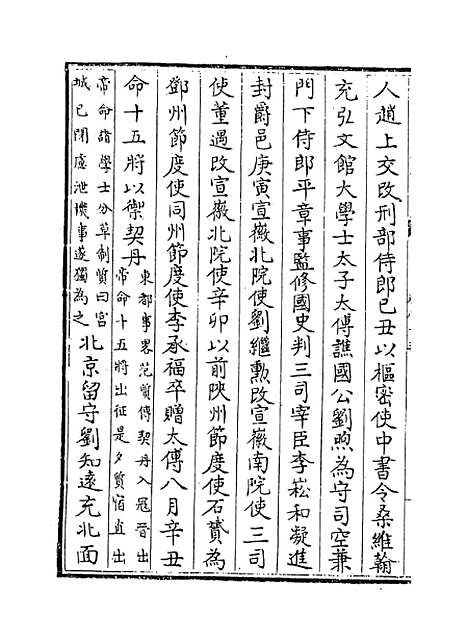 人趙上交改刑部侍郎已丑以樞密使中書令桑維翰
充弘文館大學士太子太傅譙國公劉煦為守司空兼
門下侍郎平章事監修國史判三司宰臣李崧和凝進
封爵邑庚寅宣徽北院使劉繼勲改宣徽南院使三司
使董遇改宣徽北院使辛卯以前陜州節度使石贇為
鄧州節度使同州節度使李承福卒贈太傅八月辛丑
命十五將以禦契丹
東都事畧范質傳契丹入冦晉出
帝命十五將出征是夕質宿直出
帝命諸學士分草制質曰宮
城已閉慮泄機事遂獨為之
北京留守劉知遠充北面